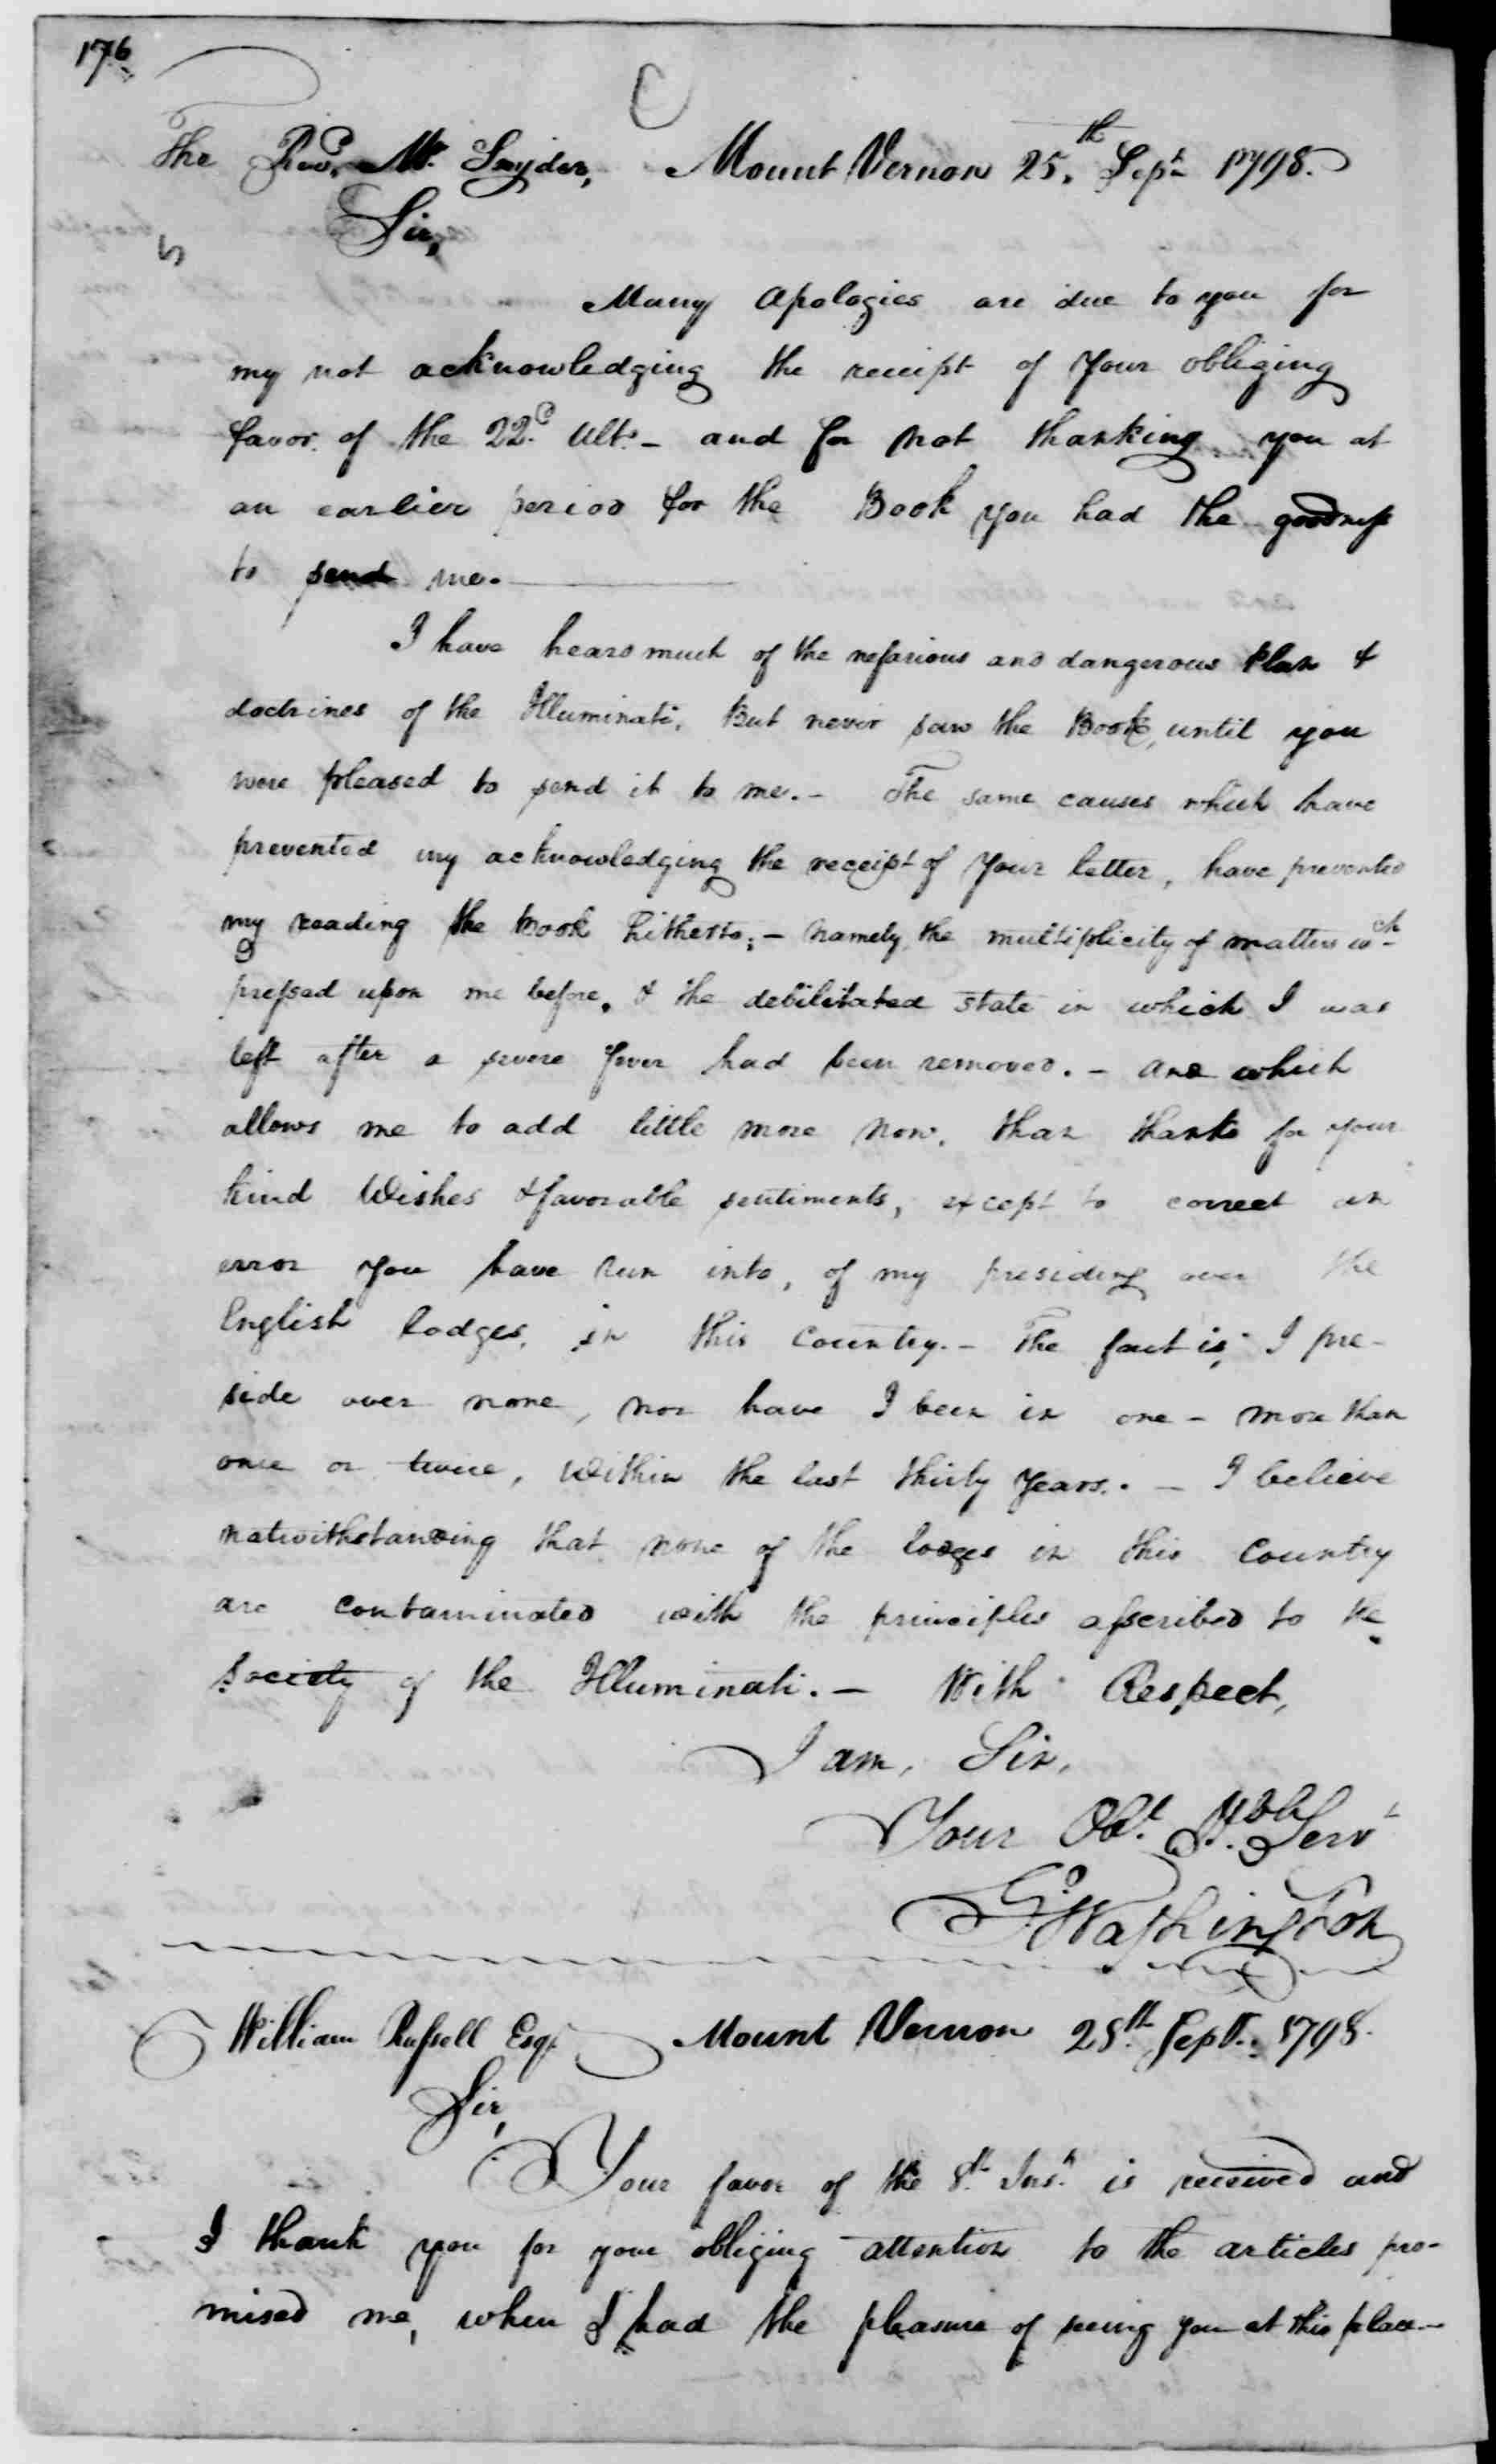 176
The Revd. Mr. Snyder, Mount Vernon 25th. Sept. 1798.
Sir,
Many Apologies are due to you for
my not acknowledging the receipt of Your obliging
favor. of the 22d. Ulto. – and for not thanking you at
an earlier period for the Book you had the goodness
to send me.
I have heard much of the nefarious and dangerous plan &
doctrines of the Illuminati, But never saw the Book, until you
were pleased to send it to me. – The same causes which have
prevented my acknowledging the receipt of Your letter, have prevented
my reading the Book hitherto; – namely, the multiplicity of matters wch
pressed upon me before, & the debilitated state in which I was
left after a severe fever had been removed. – And which
allows me to add little more now, than thanks for your
kind Wishes & favorable sentiments, except to correct an
error you have run into, of my presiding over the
English lodges, in this Country. – The fact is, I pre-
side over none, nor have I been in one – more than
once or twice, Within the last thirty Years. – I believe
notwithstanding that none of the lodges in this Country
are contaminated with the principles asscribed to the
Society of the Illuminati. – With Respect,
I am, Sir,
Your Obt. Hble Servt
Go. Washington
William Russell Esqr. Mount Vernon 28th. Sept. 1798.
Sir,
Your favor of the 8th. Inst. is received and
I thank you for your obliging attention to the articles pro-
mised me, when I had the pleasure of seeing you at this place –